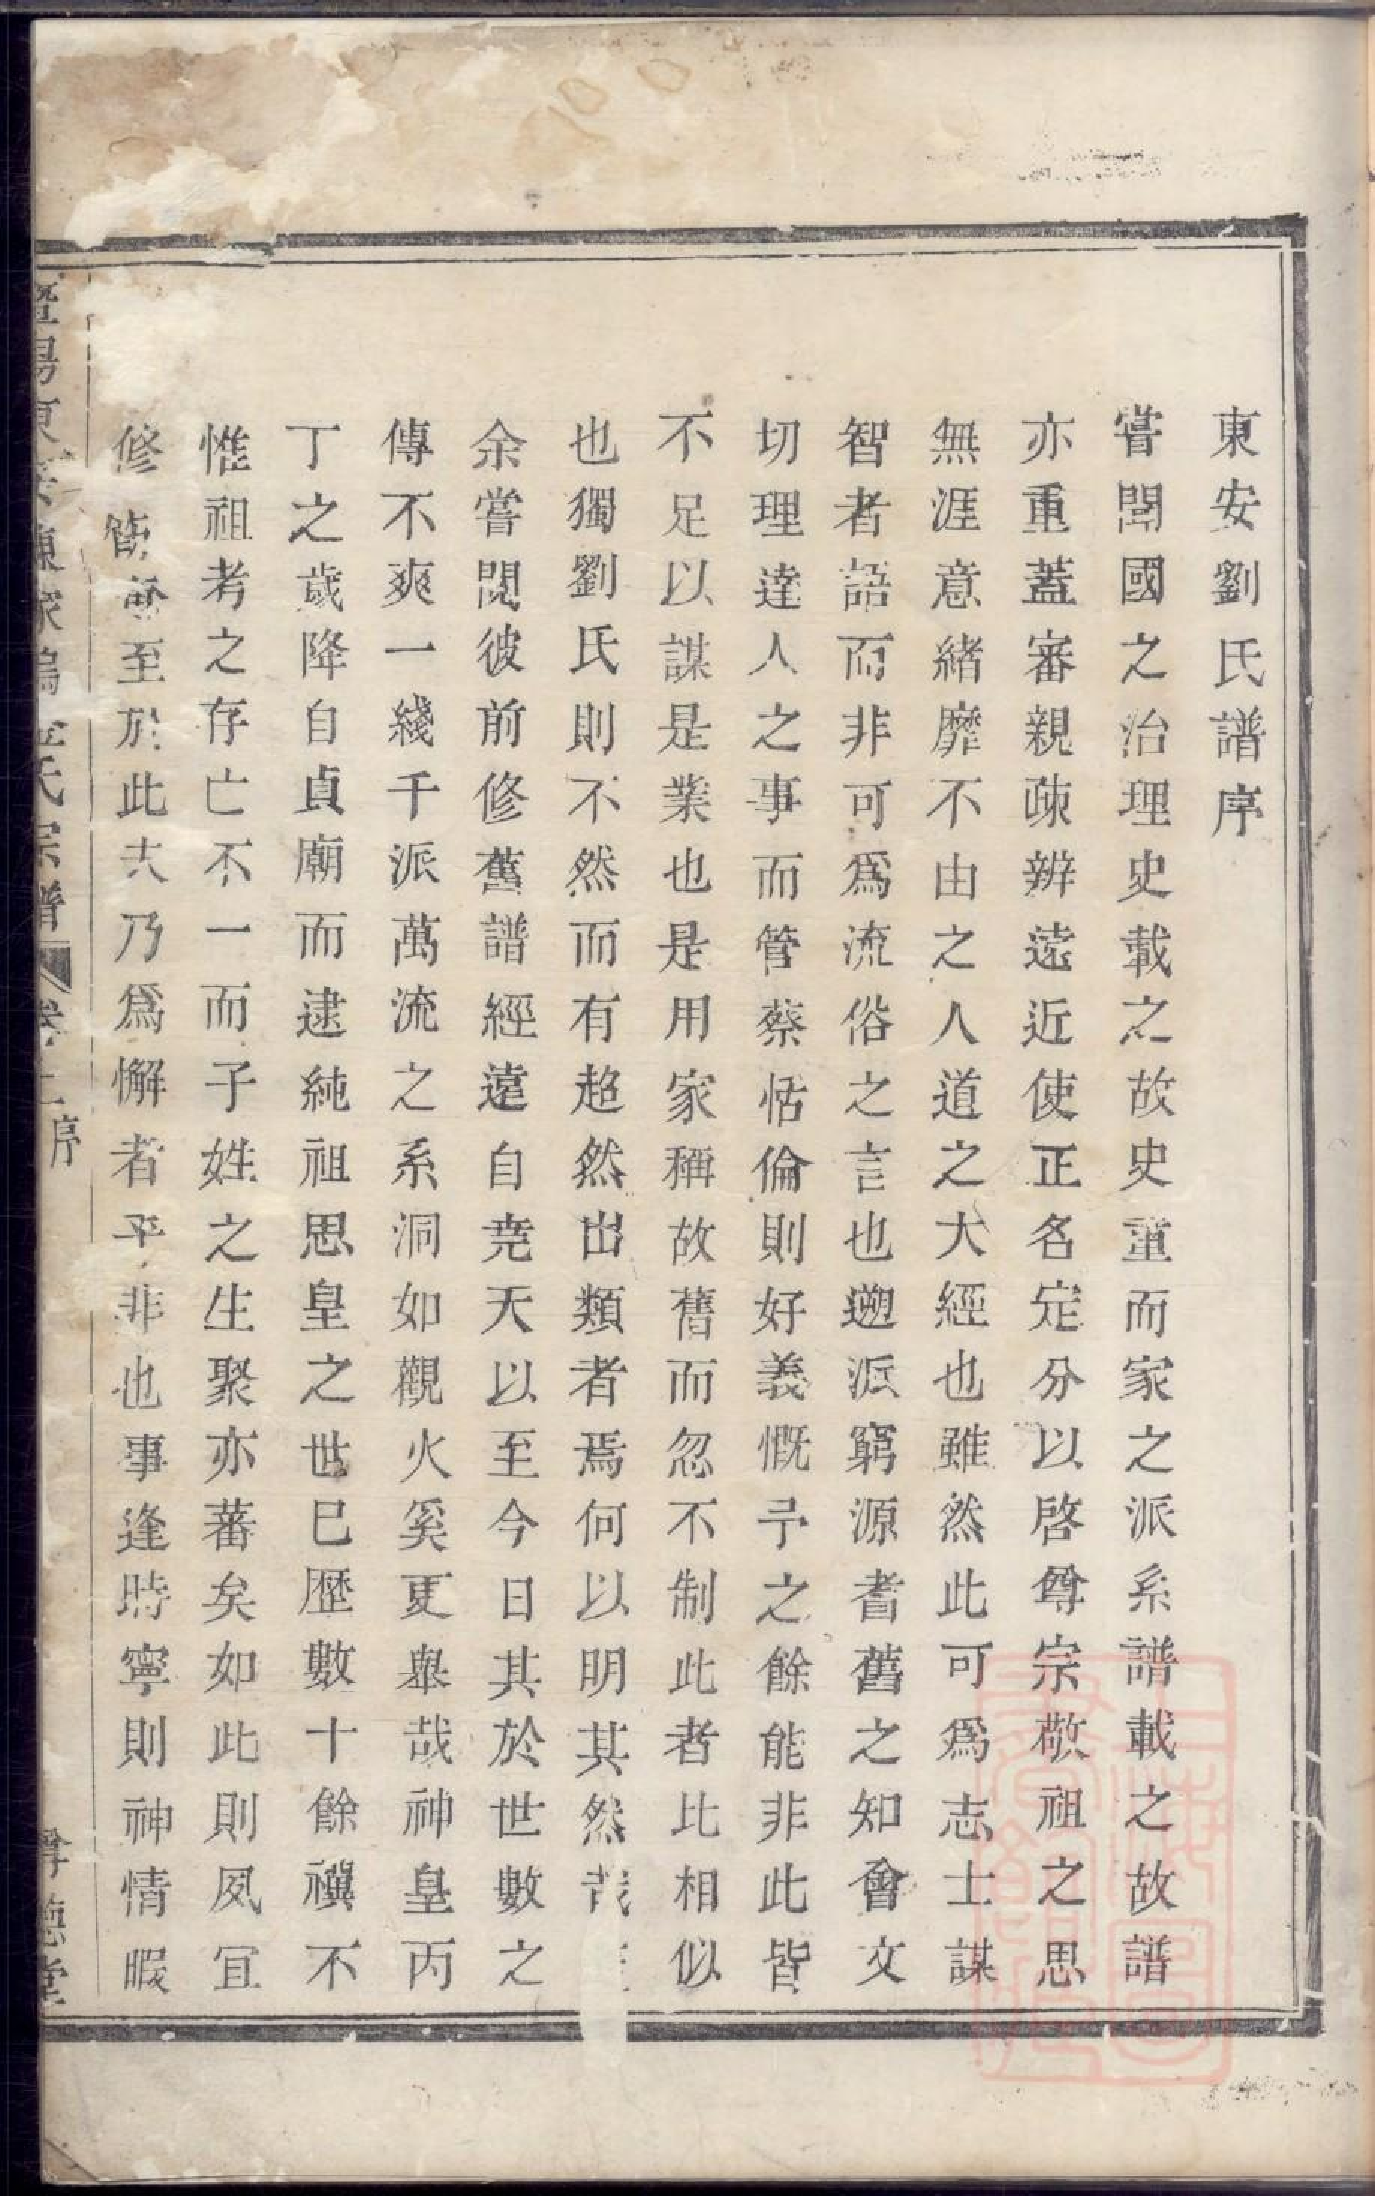 東安劉氏譜序
嘗聞國之治理史載之故史重而家之派系譜載之故譜
亦重蓋審親疎辨遠近使正名定分以啓尊宗敬祖之思
無涯意緒靡不由之人道之大經也雖然此可爲志士謀
智者語而非可爲流俗之言也遡派窮源耆舊之知會文
切理達人之事而管蔡恬倫則好義慨予之餘能非此皆
不足以謀是業也是用家稱故舊而忽不制此者比相似
也獨劉氏則不然而有超然出類者焉何以明其然哉
余嘗閱彼前修舊譜經遠自堯天以至今日其於世數之
傳不爽一綫千派萬流之系洞如觀火奚更舉哉神皇丙
丁之歲降自貞廟而逮純祖思皇之世巳歷數十餘禩不
惟祖考之存亡不一而子姓之生聚亦蕃矣如此則夙宜
修 至於此夫乃爲懈者乎非也事逢時寧則神情暇
暨陽東安 家塢 氏宗譜 卷 序 尊德堂
上海圖書館藏